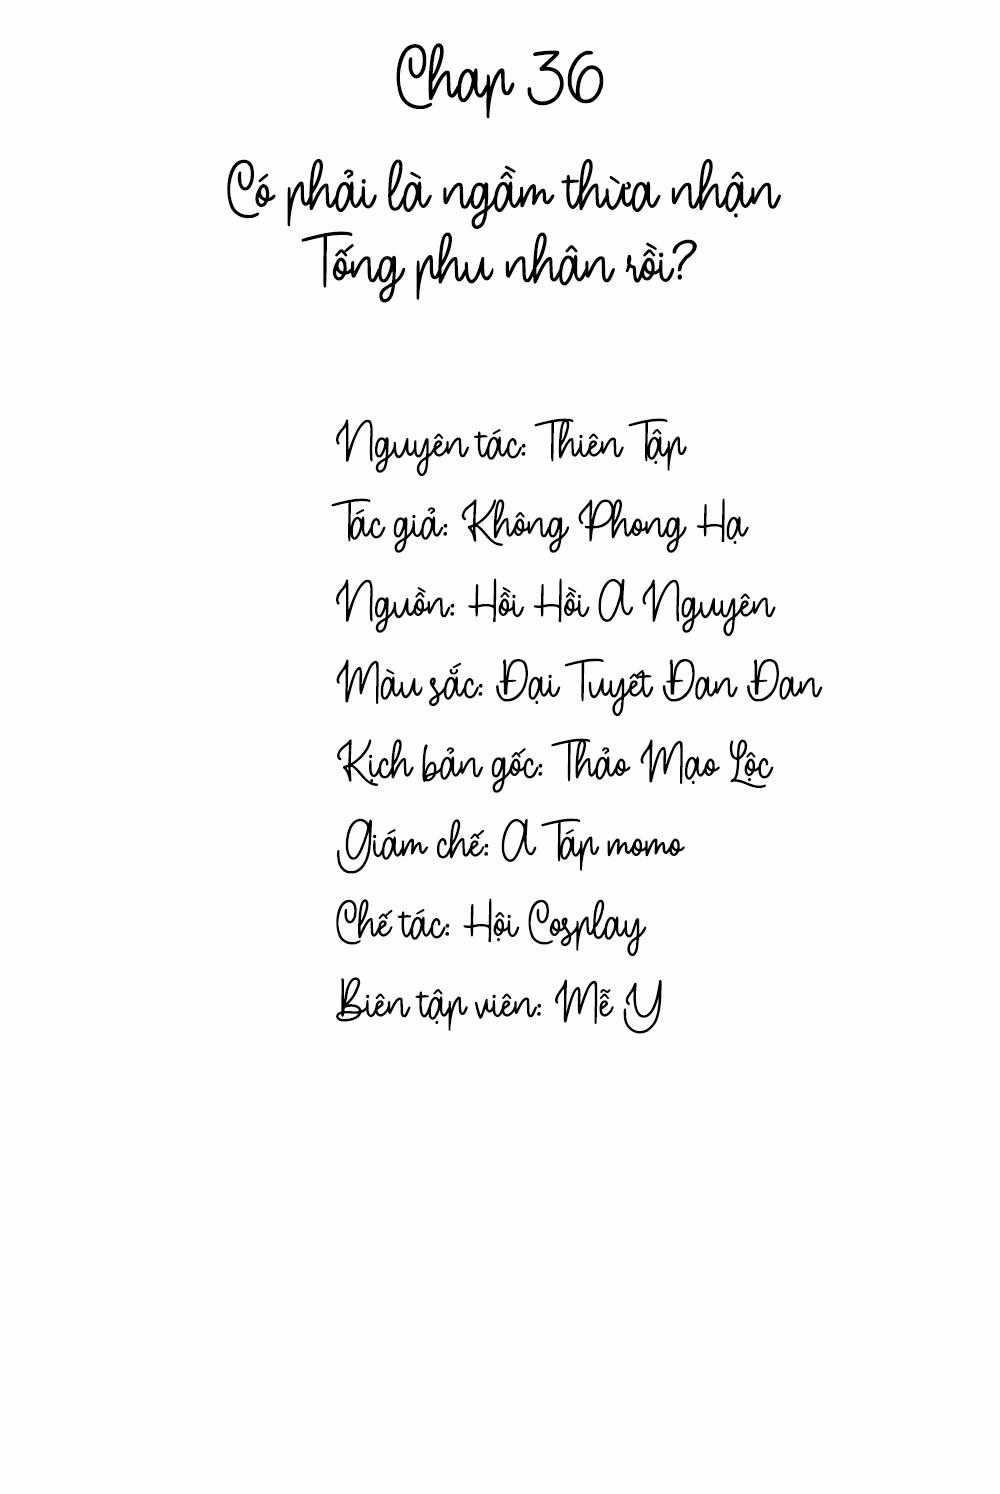 Chap 36
Có phải là ngầm thừa nhận
Tống phu nhân rồi?
Nguyên tác: Thiên Tập
Tác giả: Không Phong Hạ
Nguồn: Hồi Hồi A Nguyên
Màu sắc: Đại Tuyết Đan Đan
Kịch bản gốc: Thảo Mạo Lộc
Giám chế: A Táp momo
Chế tác: Hội Cosplay
Biên tập viên: Mễ Y